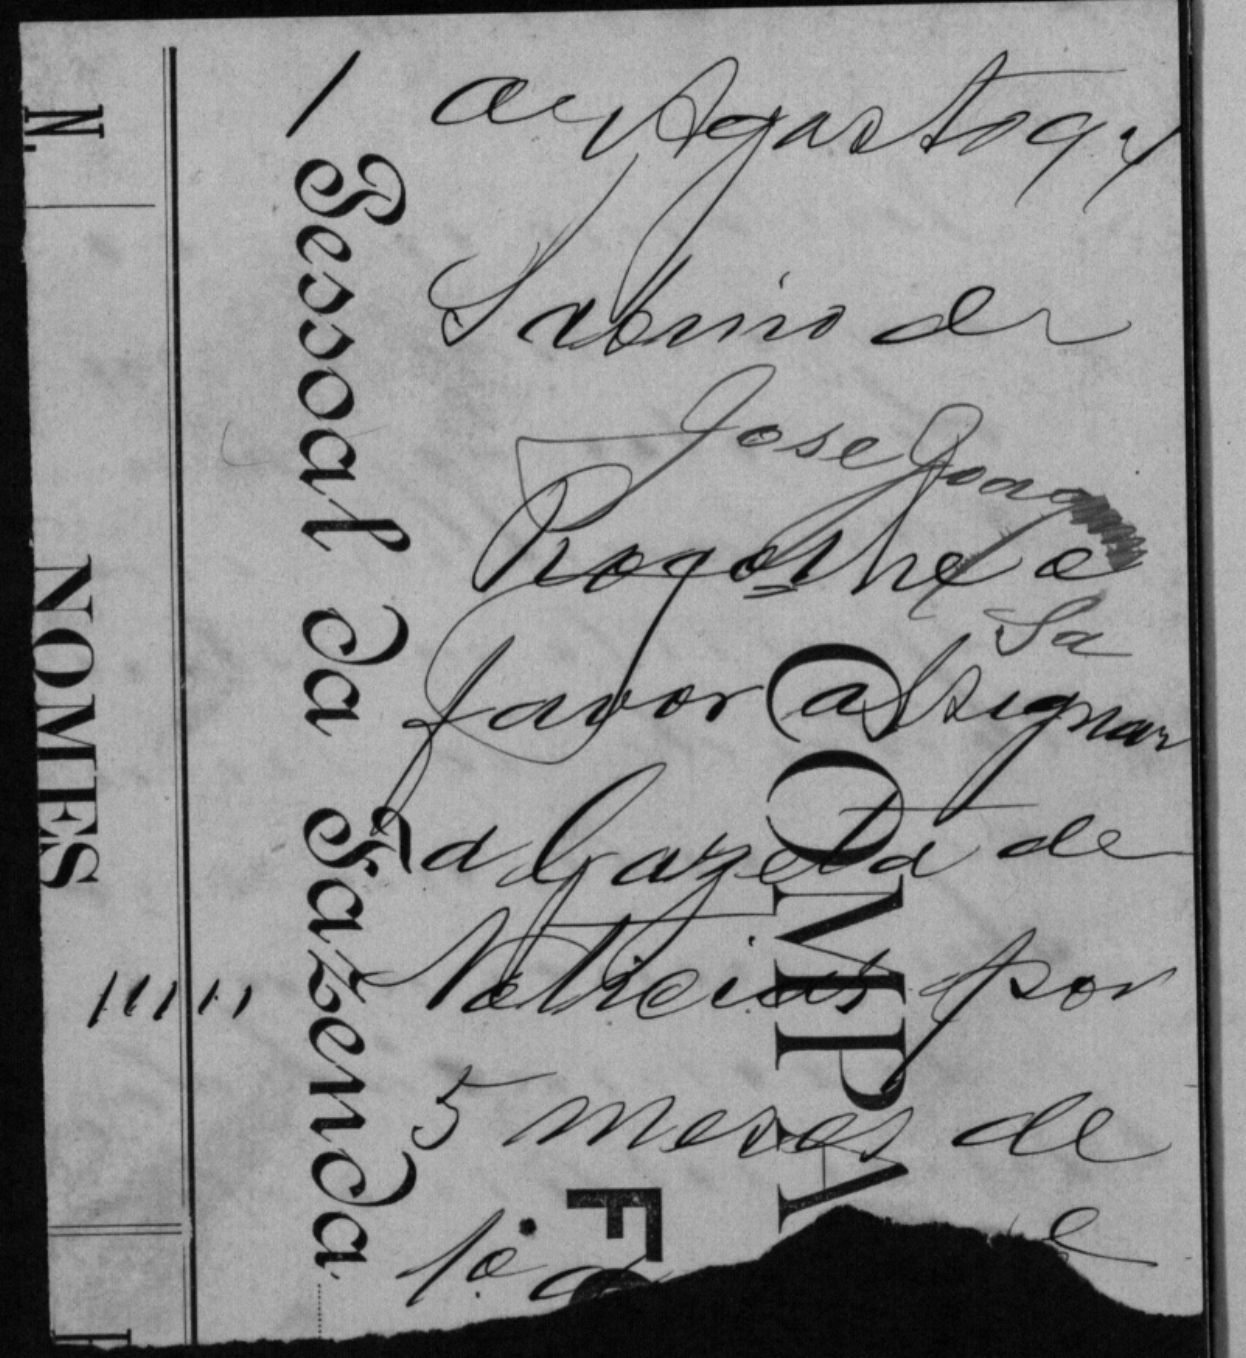 1 de Agosto 94
Sabino de
Jose Joaq
Rogo lhe o
Sa
favor assignar
a Gazeta de
Noticias por
5 meses de
1º. d e
N.
NOMES
Pessoal da Fazenda
COMPA
F